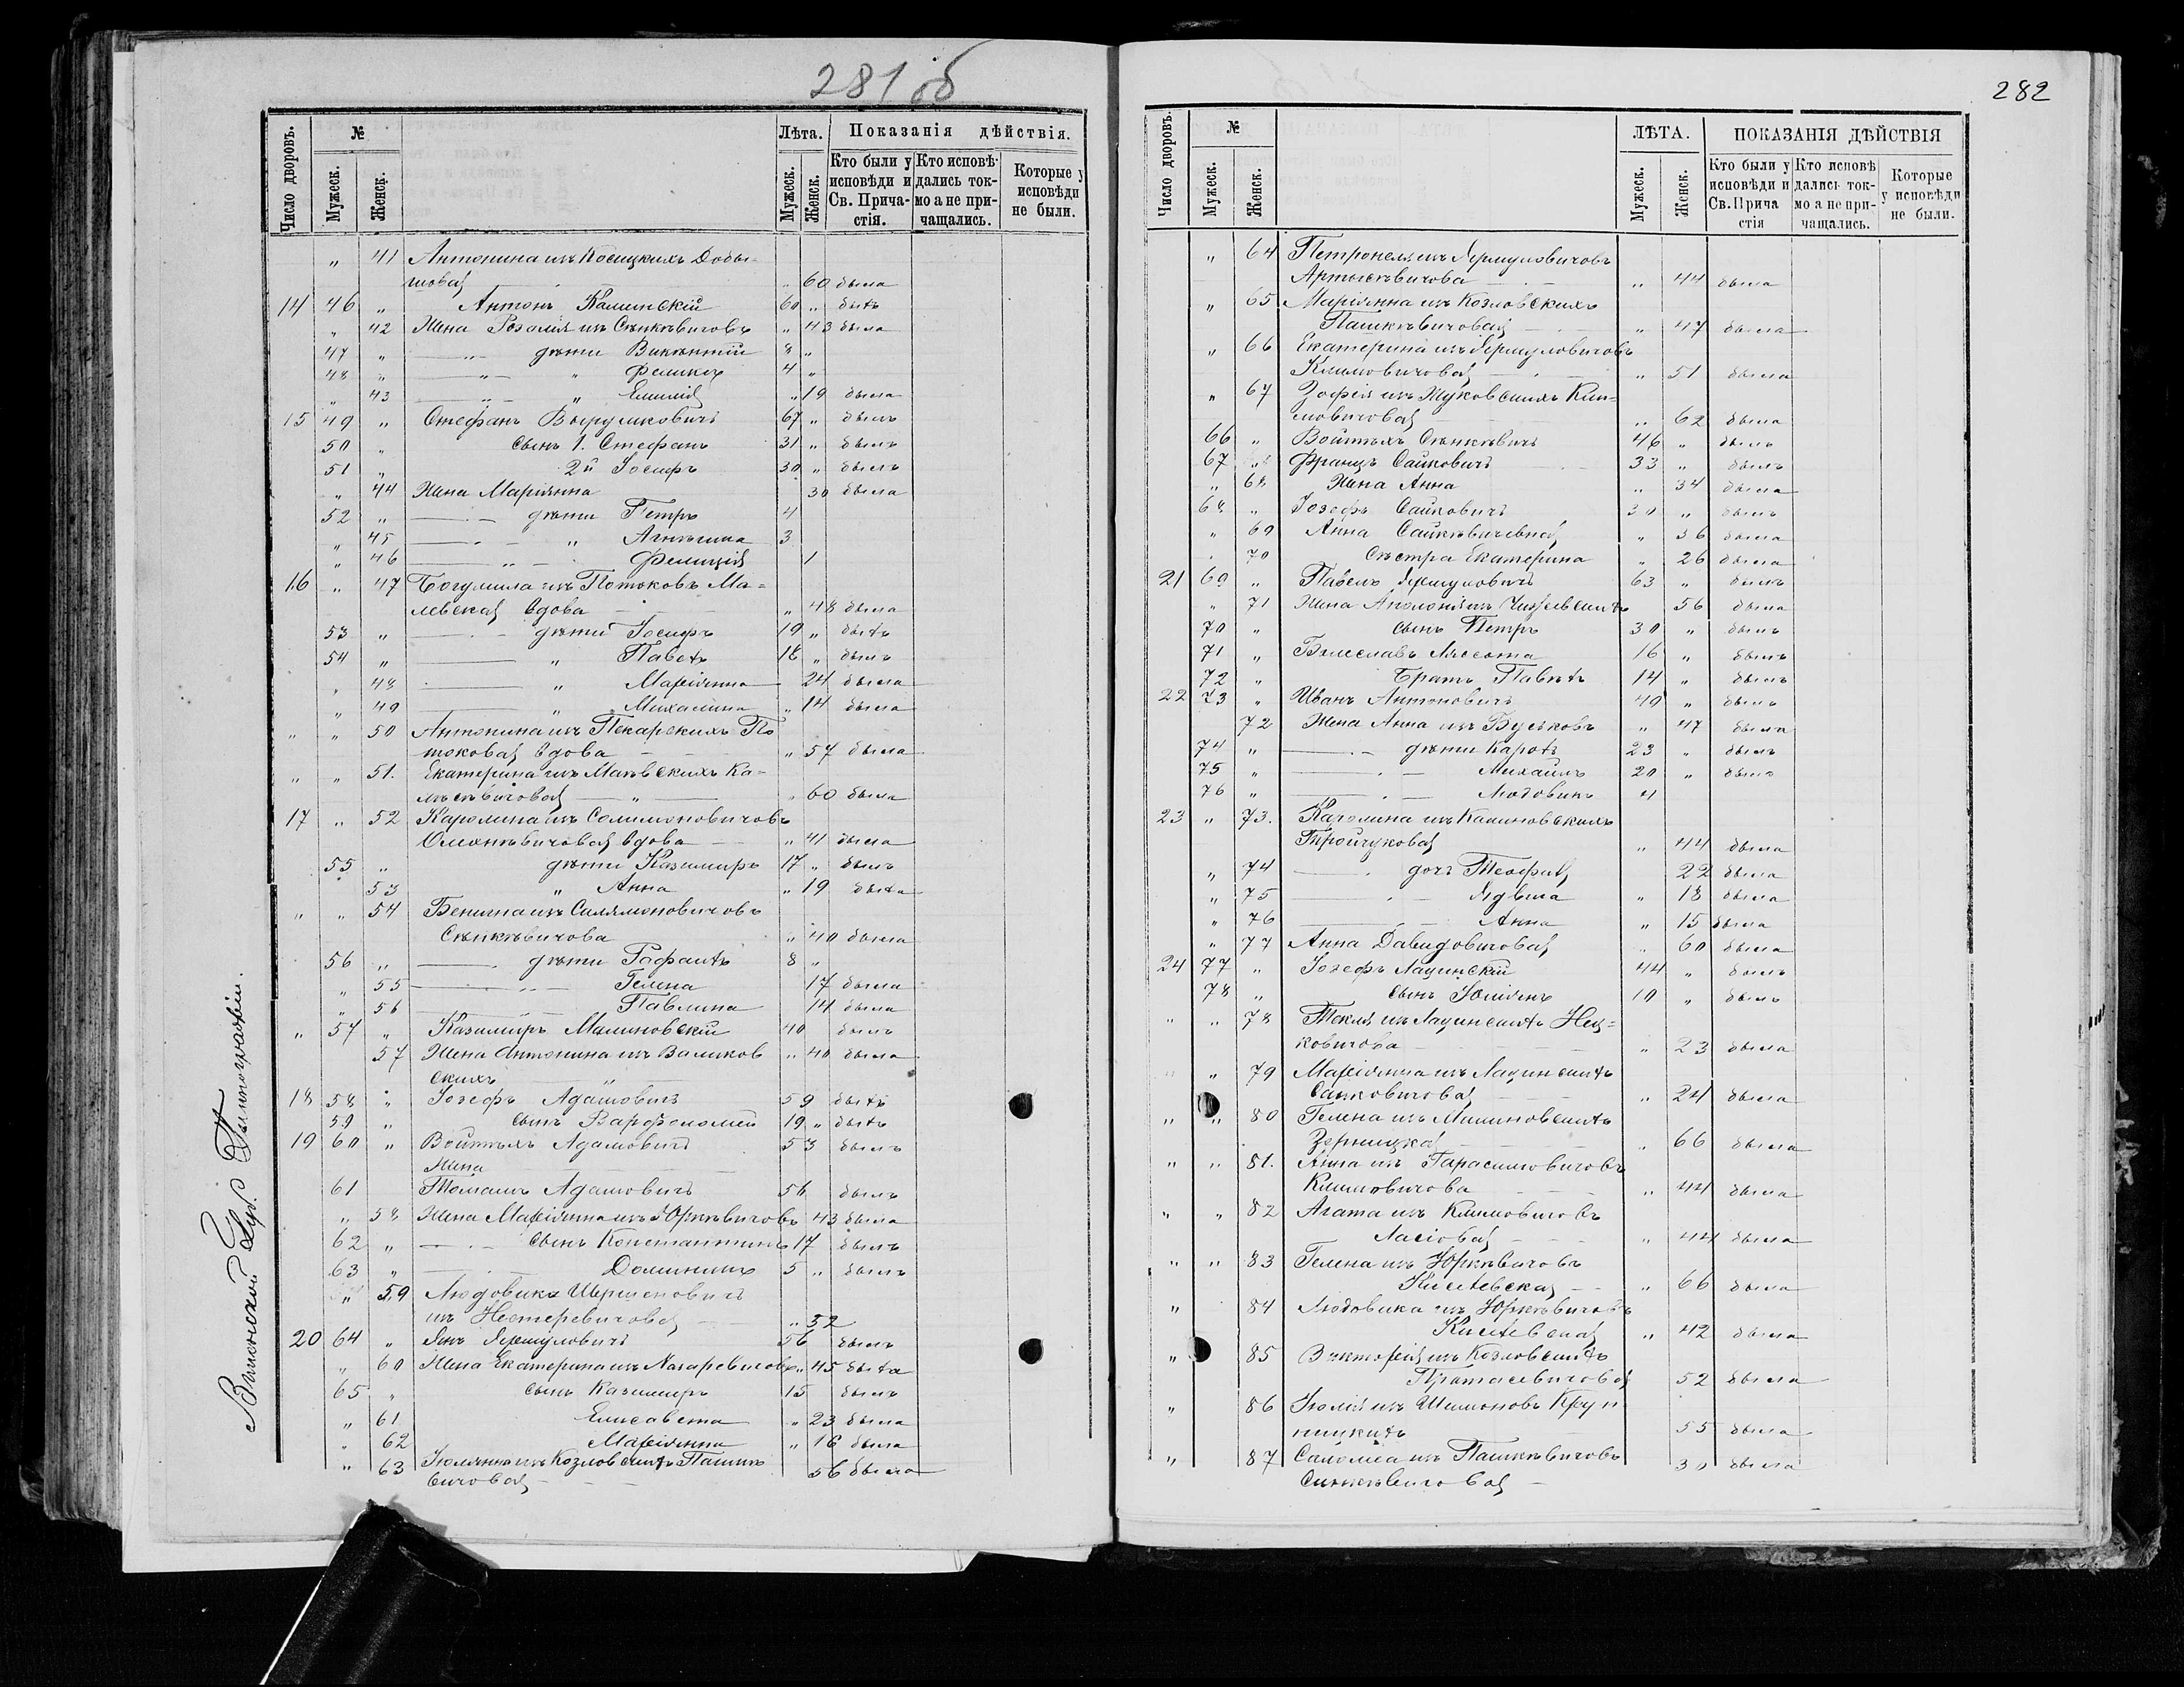 281 об
Число дворовъ. № Мужеск. Женск. Лѣта. Мужеск. Женск. Показанія дѣйствія. Кто были у исповѣди и Св. Причастія. Кто исповѣдались токмо а не причащались. Которые у исповѣди не были.
" 41 Антонина изъ Косицкихъ Добы-
" 60 была
14 46 " Антонъ Калинскій 60 " былъ
" 42 Жена Розалія изъ Сѣнкѣвичовъ " 43 была
47 " дѣти Викѣнтій 8 "
48 " " " Феликсъ 4 "
" 43 " " Емилія " 19 была
15 49 " Стефанъ 67 " былъ
50 " сынъ 1. Стефанъ 31 " былъ
51 " 2й Іосифъ 30 " былъ
" 44 Жена Маріянна 30 была
52 " дѣти Петръ 4
" 45 " 3
" 46 " Фелиція 1
16 " 47 Богумила изъ Потоковъ Ма=
левская вдова " 48 была
53 " дѣти Іосифъ 19 " былъ
54 " " Павелъ 18 " былъ
" 48 " Маріянна 24 была
" 49 " Михалина " 14 была
" " 50 Антонина изъ Пекарскихъ По
токовая вдова " 57 была
" " 51. Екатерина изъ Ка-
" 60 была
17 " 52 Каролина изъ Солимоновичовъ
вдова " 41 была
55 " дѣти Казимиръ 17 " былъ
53 " Анна " 19 была
" " 54 Бенигна изъ Салямоновичовъ
Сѣнкѣвичова " 40 была
56 " дѣти Рафаилъ 8 "
" 55 Гелена 17 была
" 56 Павлина 14 была
" 57 " Казимиръ Малиновскій 40 былъ
57 Жена Антонина изъ Валиков
скихъ " 40 была
18 58 " Іозефъ Адамовичъ 59 былъ
59 " сынъ Варфоломей 19 " былъ
19 60 " Войтѣхъ Адамовичъ 53 былъ
Жена
61 Томашъ Адамовичъ 56 былъ
" 58 Жена Маріянна изъ Юркѣвичовъ 43 была
62 " сынъ Константинъ 17 былъ
63 " Доминикъ 5 " былъ
" 59 Людовика
изъ Нестеревичовъ " 32
20 64 " Янъ Ярмуловичъ 56 былъ
" 60 Жена Екатерина изъ Назаревичовъ " 45 была
65 " сынъ Казимиръ 15 былъ
" 61 Елисавета " 23 была
" 62 Маріянна " 16 была
" 63 Юлянна изъ Козловскихъ Пашкѣ
вичовая 56 была
Виленской Губ. Типографіи.
282
Число дворовъ. № Мужеск. Женск. ЛѢТА. Мужеск. Женск. ПОКАЗАНІЯ ДѢЙСТВІЯ Кто были у исповѣди и Св. Прича стія Кто исповѣ дались токмо а не причащались. Которые у исповѣди не были.
" 64 Петронеля изъ Ярмуловичовъ
" 44 была
" 65 Маріянна изъ Козловскихъ
Пашкѣвичовая " 47 была
" 66 Екатерина изъ Ярмуловичовъ
Климовичовая " 51 была
" 67 Зофія изъ Жуковскихъ Кли-
мовичовая " 62 была
66 " Войтѣхъ Сѣнкѣвичъ 46 " былъ
67 " Францъ Сайковичъ 33 " былъ
" 68 Жена Анна " 34 была
68 " Іозефъ Сайковичъ 30 " былъ
" 69 Анна Сайкѣвичевна " 36 была
" 70 Сѣстра Екатерина " 26 была
21 69 " Павелъ Ярмуловичъ 63 " былъ
" 71 Жена Аполонія изъ 56 была
70 " сынъ Петръ 30 " былъ
71 " Болеславъ 16 " былъ
72 " Братъ Павелъ 14 " былъ
22 73 " Иванъ Антоновичъ 49 " былъ
72 Жена Анна изъ Буськовъ " 47 была
74 " дѣти Каролъ 23 " былъ
75 " Михаилъ 20 " былъ
76 " Людовикъ 4
23 " 73. Каролина изъ Калиновскихъ
Тройчуковая " 44 была
" 74 дочь Теофиля 22 была
" 75 Ядвига " 18 была
" 76 Анна " 15 была
" 77 Анна Давидовичовая " 60 была
24 77 " Іозефъ Лацинскій 44 " былъ
78 " сынъ Юліянъ 19 " былъ
" " 78 Текля изъ Лацинскихъ Нец=
ковичова " 23 была
" " 79 Маріянна изъ Лацинскихъ
Санковичовая " 24 была
" " 80 Гелена изъ Малиновскихъ
Зерницкая " 66 была
" " 81. Анна изъ Гарасимовичовъ
Климовичова " 44 была
" " 82 Агата изъ Климовичовъ
" 44 была
" " 83 Гелена изъ Юркѣвичовъ
Киселевская " 66 была
" 84 Людовика изъ Юркѣвичовъ
Киселевская " 42 была
" 85 Викторія изъ Козловскихъ
Протасевичовая 52 была
" 86 Юлія изъ Шимоновъ Круп
55 была
" 87 Саломеа изъ Пашкѣвичовъ
Синкѣвичовая 30 была